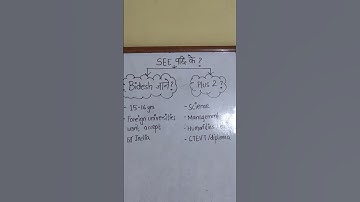 SEE पछि के ?
Bidesh जाने?
Plus 2 ?
- 15-16 yrs
- Foreign universities
wont accept
- India
- Science
- Management
- Humanities
- CTEVT /diploma